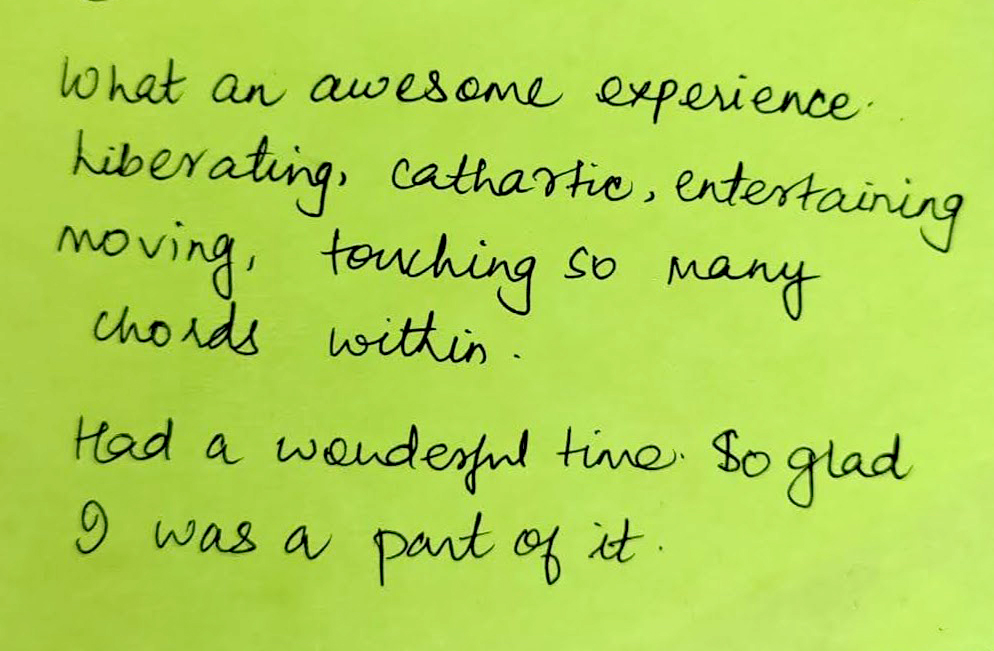 What an awesome experience.
Liberating, cathartic, entertaining
moving, touching so many
chords within.
Had a wonderful time. So glad
I was a part of it.